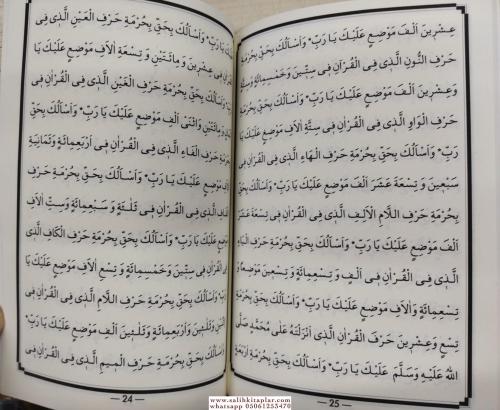 مَوْضِعٍ عَلَيْكَ يَا رَبِّ * وَاَسْاَلُكَ بِحَقِّ بِحُرْمَةِ حَرْفِ الْعَيْنِ الَّذٖى
فٖى عِشْرٖينَ وَ مِائَتَيْنِ وَ تِسْعَةِ اٰلَافِ مَوْضِعٍ عَلَيْكَ يَا
وَاَسْاَلُكَ بِحَقِّ بِحُرْمَةِ حَرْفِ الْغَيْنِ الَّذٖى فِى الْقُرْاٰنِ
وَ مِائَتَيْنِ وَاثْنَىْ اَلْفِ مَوْضِعٍ عَلَيْكَ يَا رَبِّ * وَاَسْاَلُكَ بِحَقِّ
حَرْفِ الْفَاءِ الَّذٖى فِى الْقُرْاٰنِ فٖى اَرْبَعِمِائَةٍ وَثَمَانِيَةِ
مَوْضِعٍ عَلَيْكَ يَا رَبِّ * وَاَسْاَلُكَ بِحَقِّ بِحُرْمَةِ حَرْفِ
الَّذٖى فِى الْقُرْاٰنِ فٖى ثَلٰثَةٍ وَ سَبْعِمِائَةٍ وَسِتِّ اٰلَافِ
مَوْضِعٍ عَلَيْكَ يَا رَبِّ * وَاَسْاَلُكَ بِحَقِّ بِحُرْمَةِ حَرْفِ الْكَافِ الَّذٖى
فِى الْقُرْاٰنِ فٖى سِتّٖينَ وَخَمْسِمِائَةٍ وَ تِسْعِ اٰلَافِ مَوْضِعٍ عَلَيْكَ يَا
وَاَسْاَلُكَ بِحَقِّ بِحُرْمَةِ حَرْفِ اللَّامِ الَّذٖى فِى الْقُرْاٰنِ فٖى
وَاَرْبَعِمِائَةٍ وَ ثَلٰثٖينَ اَلْفِ مَوْضِعٍ عَلَيْكَ يَا رَبِّ *
وَاَسْاَلُكَ بِحَقِّ بِحُرْمَةِ حَرْفِ الْمٖيمِ الَّذٖى فِى الْقُرْاٰنِ فٖى
24
عِشْرٖينَ اَلْفَ مَوْضِعٍ عَلَيْكَ يَا رَبِّ * وَاَسْاَلُكَ بِحَقِّ بِحُرْمَةِ
حَرْفِ النُّونِ الَّذٖى فِى الْقُرْاٰنِ فٖى سِتّٖينَ وَ خَمْسِمِائَةٍ وَسِتَّةِ
وَعِشْرٖينَ اَلْفَ مَوْضِعٍ عَلَيْكَ يَا رَبِّ * وَاَسْاَلُكَ بِحَقِّ بِحُرْمَةِ
حَرْفِ الْوَاوِ الَّذٖى فِى الْقُرْاٰنِ فٖى سِتَّةِ اٰلَافِ مَوْضِعٍ عَلَيْكَ يَا
رَبِّ * وَاَسْاَلُكَ بِحَقِّ بِحُرْمَةِ حَرْفِ الْهَاءِ الَّذٖى فِى الْقُرْاٰنِ فٖى
سَبْعٖينَ وَ تِسْعَةَ عَشَرَ اَلْفَ مَوْضِعٍ عَلَيْكَ يَا رَبِّ * وَاَسْاَلُكَ بِحَقِّ
بِحُرْمَةِ حَرْفِ اللَّامِ اَلِفِ الَّذٖى فِى الْقُرْاٰنِ فٖى تِسْعَةَ عَشَرَ
اَلْفَ مَوْضِعٍ عَلَيْكَ يَا رَبِّ * وَاَسْاَلُكَ بِحَقِّ بِحُرْمَةِ حَرْفِ الْيَاءِ
الَّذٖى فِى الْقُرْاٰنِ فٖى اَلْفٍ وَ تِسْعِمِائَةٍ وَ تِسْعٖينَ مَوْضِعًا وَ
تِسْعِمِائَةٍ وَاٰلَافِ مَوْضِعٍ عَلَيْكَ يَا رَبِّ * وَاَسْاَلُكَ بِحَقِّ بِحُرْمَةِ
تِسْعٍ وَعِشْرٖينَ حَرْفَ الْقُرْاٰنِ الَّذٖى اَنْزَلْتَهُ عَلٰى مُحَمَّدٍ صَلَّى
اللّٰهُ عَلَيْهِ وَسَلَّمَ عَلَيْكَ يَا رَبِّ * وَاَسْاَلُكَ بِحَقِّ بِحُرْمَةِ اَرْبَعَةِ
25
www.salihkitaplar.com
whatsapp 05061253470